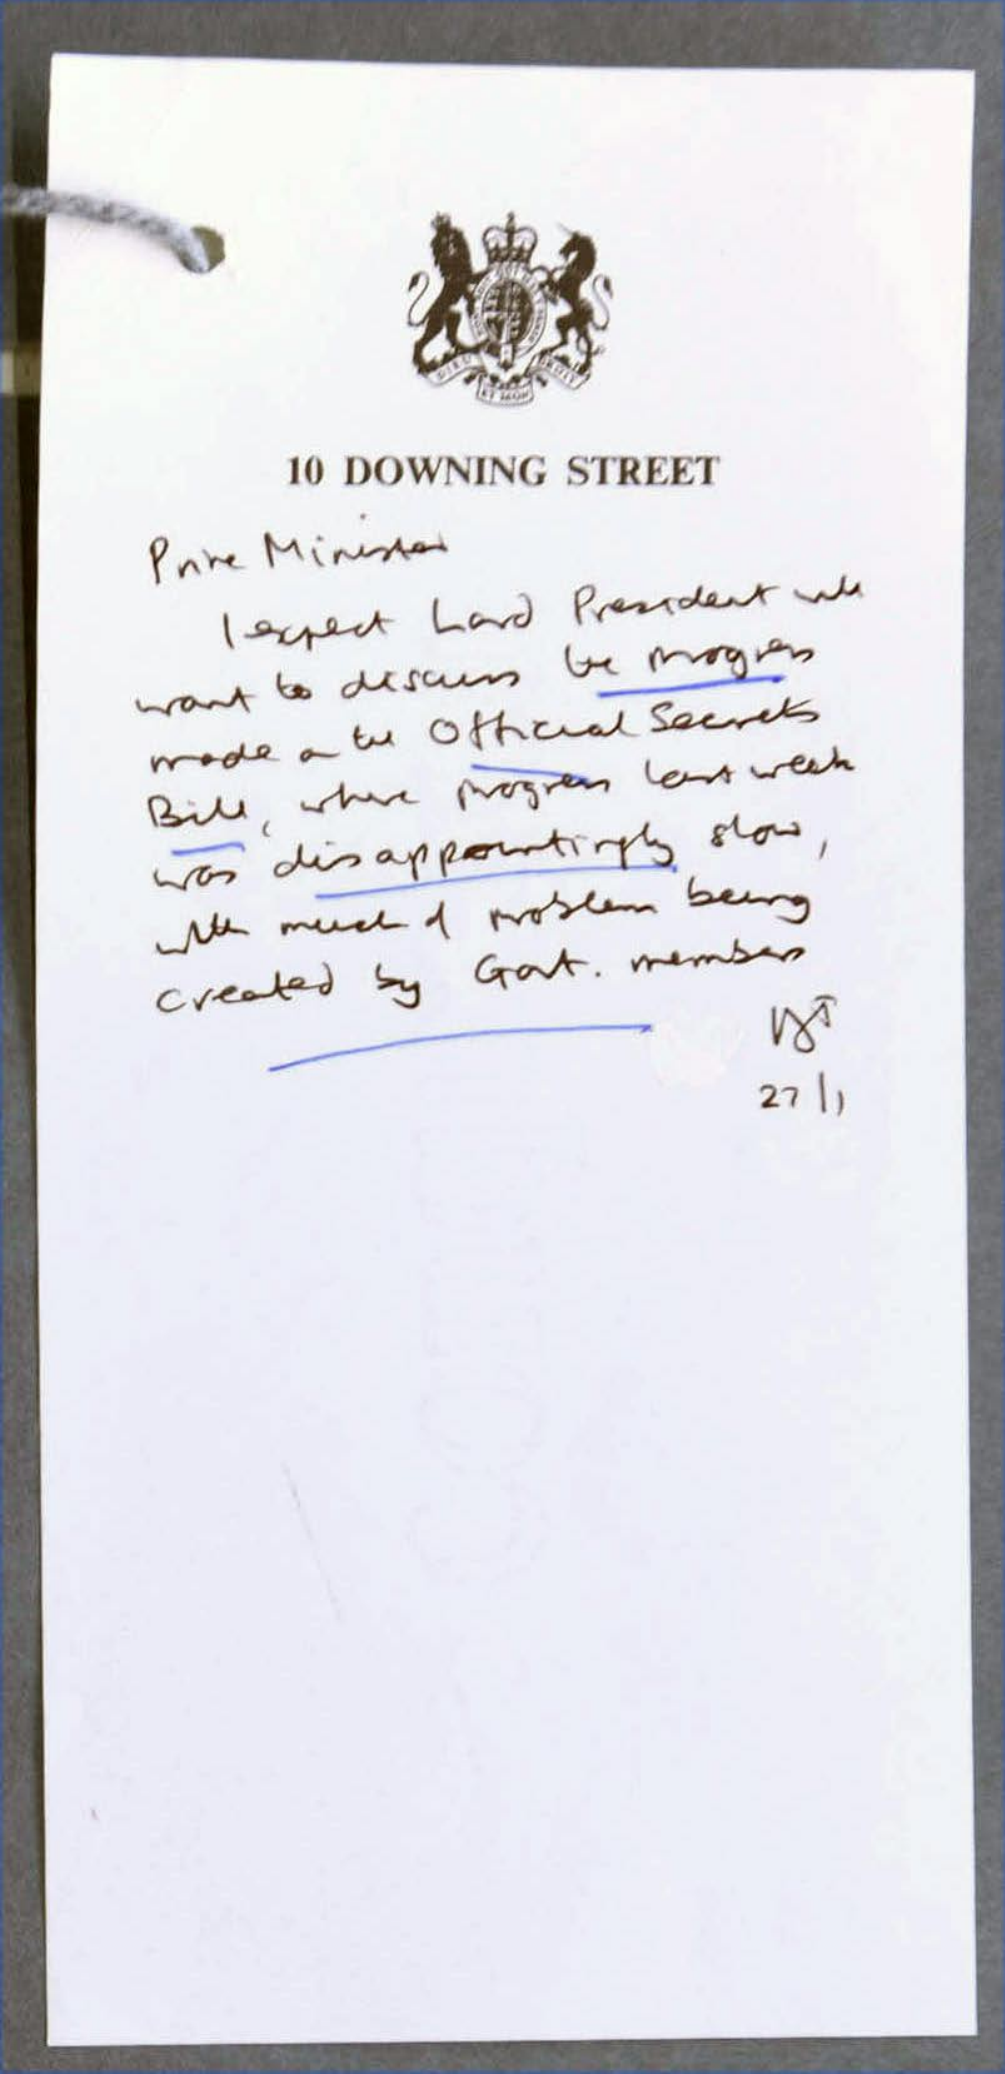 10 DOWNING STREET
Prime Minister
I expect Lord President will
want to discuss the progress
made on the Official Secrets
Bill, where progress last week
was disappointingly slow,
with much of problem being
created by Govt. members
27/1